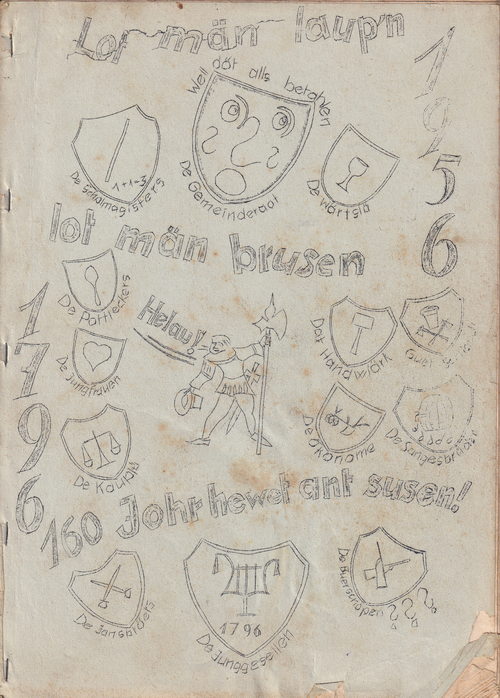 Lot män laup'n
1956
Well döt alls betahlen
1+1=3
De Schalmagisters
De Gemeinderaat
De Wörtslü
lot män brusen
1796
De Pottleckers
Helau!
De Jungfrauen
Dat Handwiärk
De Kauplü
De Ökonome
De Sangesbrüder
160 Johr hewet ant susen!
De Jansbröers
1796
De Junggesellen
De Bierschöpen